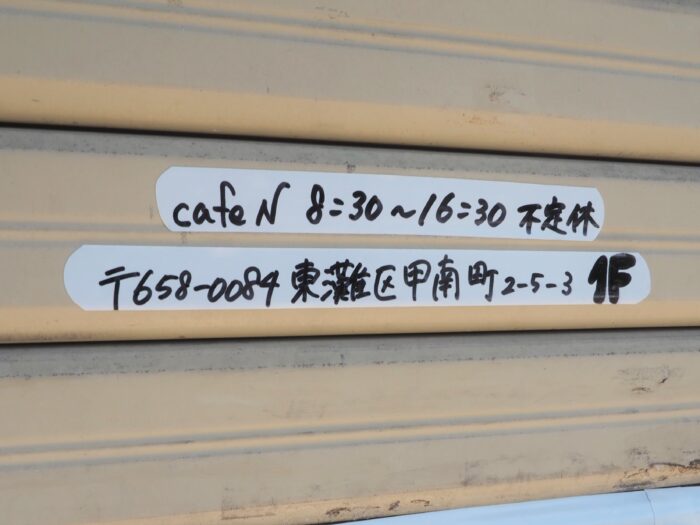 cafe N 8:30~16:30 不定休
〒658-0084 東灘区甲南町2-5-3 1F